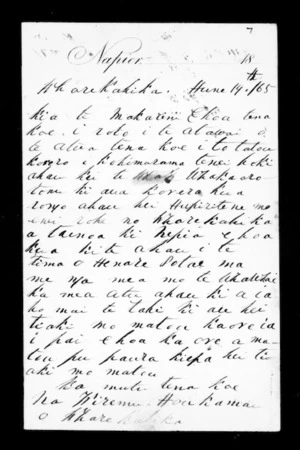 7
Napier 18
Wharekahika. Hune 19th /65
kia te Makarini Ehoa tena
koe. i roto i te atawai o
te atua tena koe i to tatou
korero i Kohimarama tenei hoki
ahau kei te Whakaaro
tonu ki aua korero kua
rongo ahau kei
iwi no Wharekahika
a taenoa ki Nepia e hoa
kua kite ahau i te
tima o Henare Potae ma
me nga mea mo te
ka mea atu ahau ki a ia
ho mai te tahi ki au hei
tiaki mo matou kaore ia
i pai Ehoa ka ore a ma
tou pu paura hei ti
aki mo matou
Ka mutu tena koe
Na Wiremu
o Wharekahika